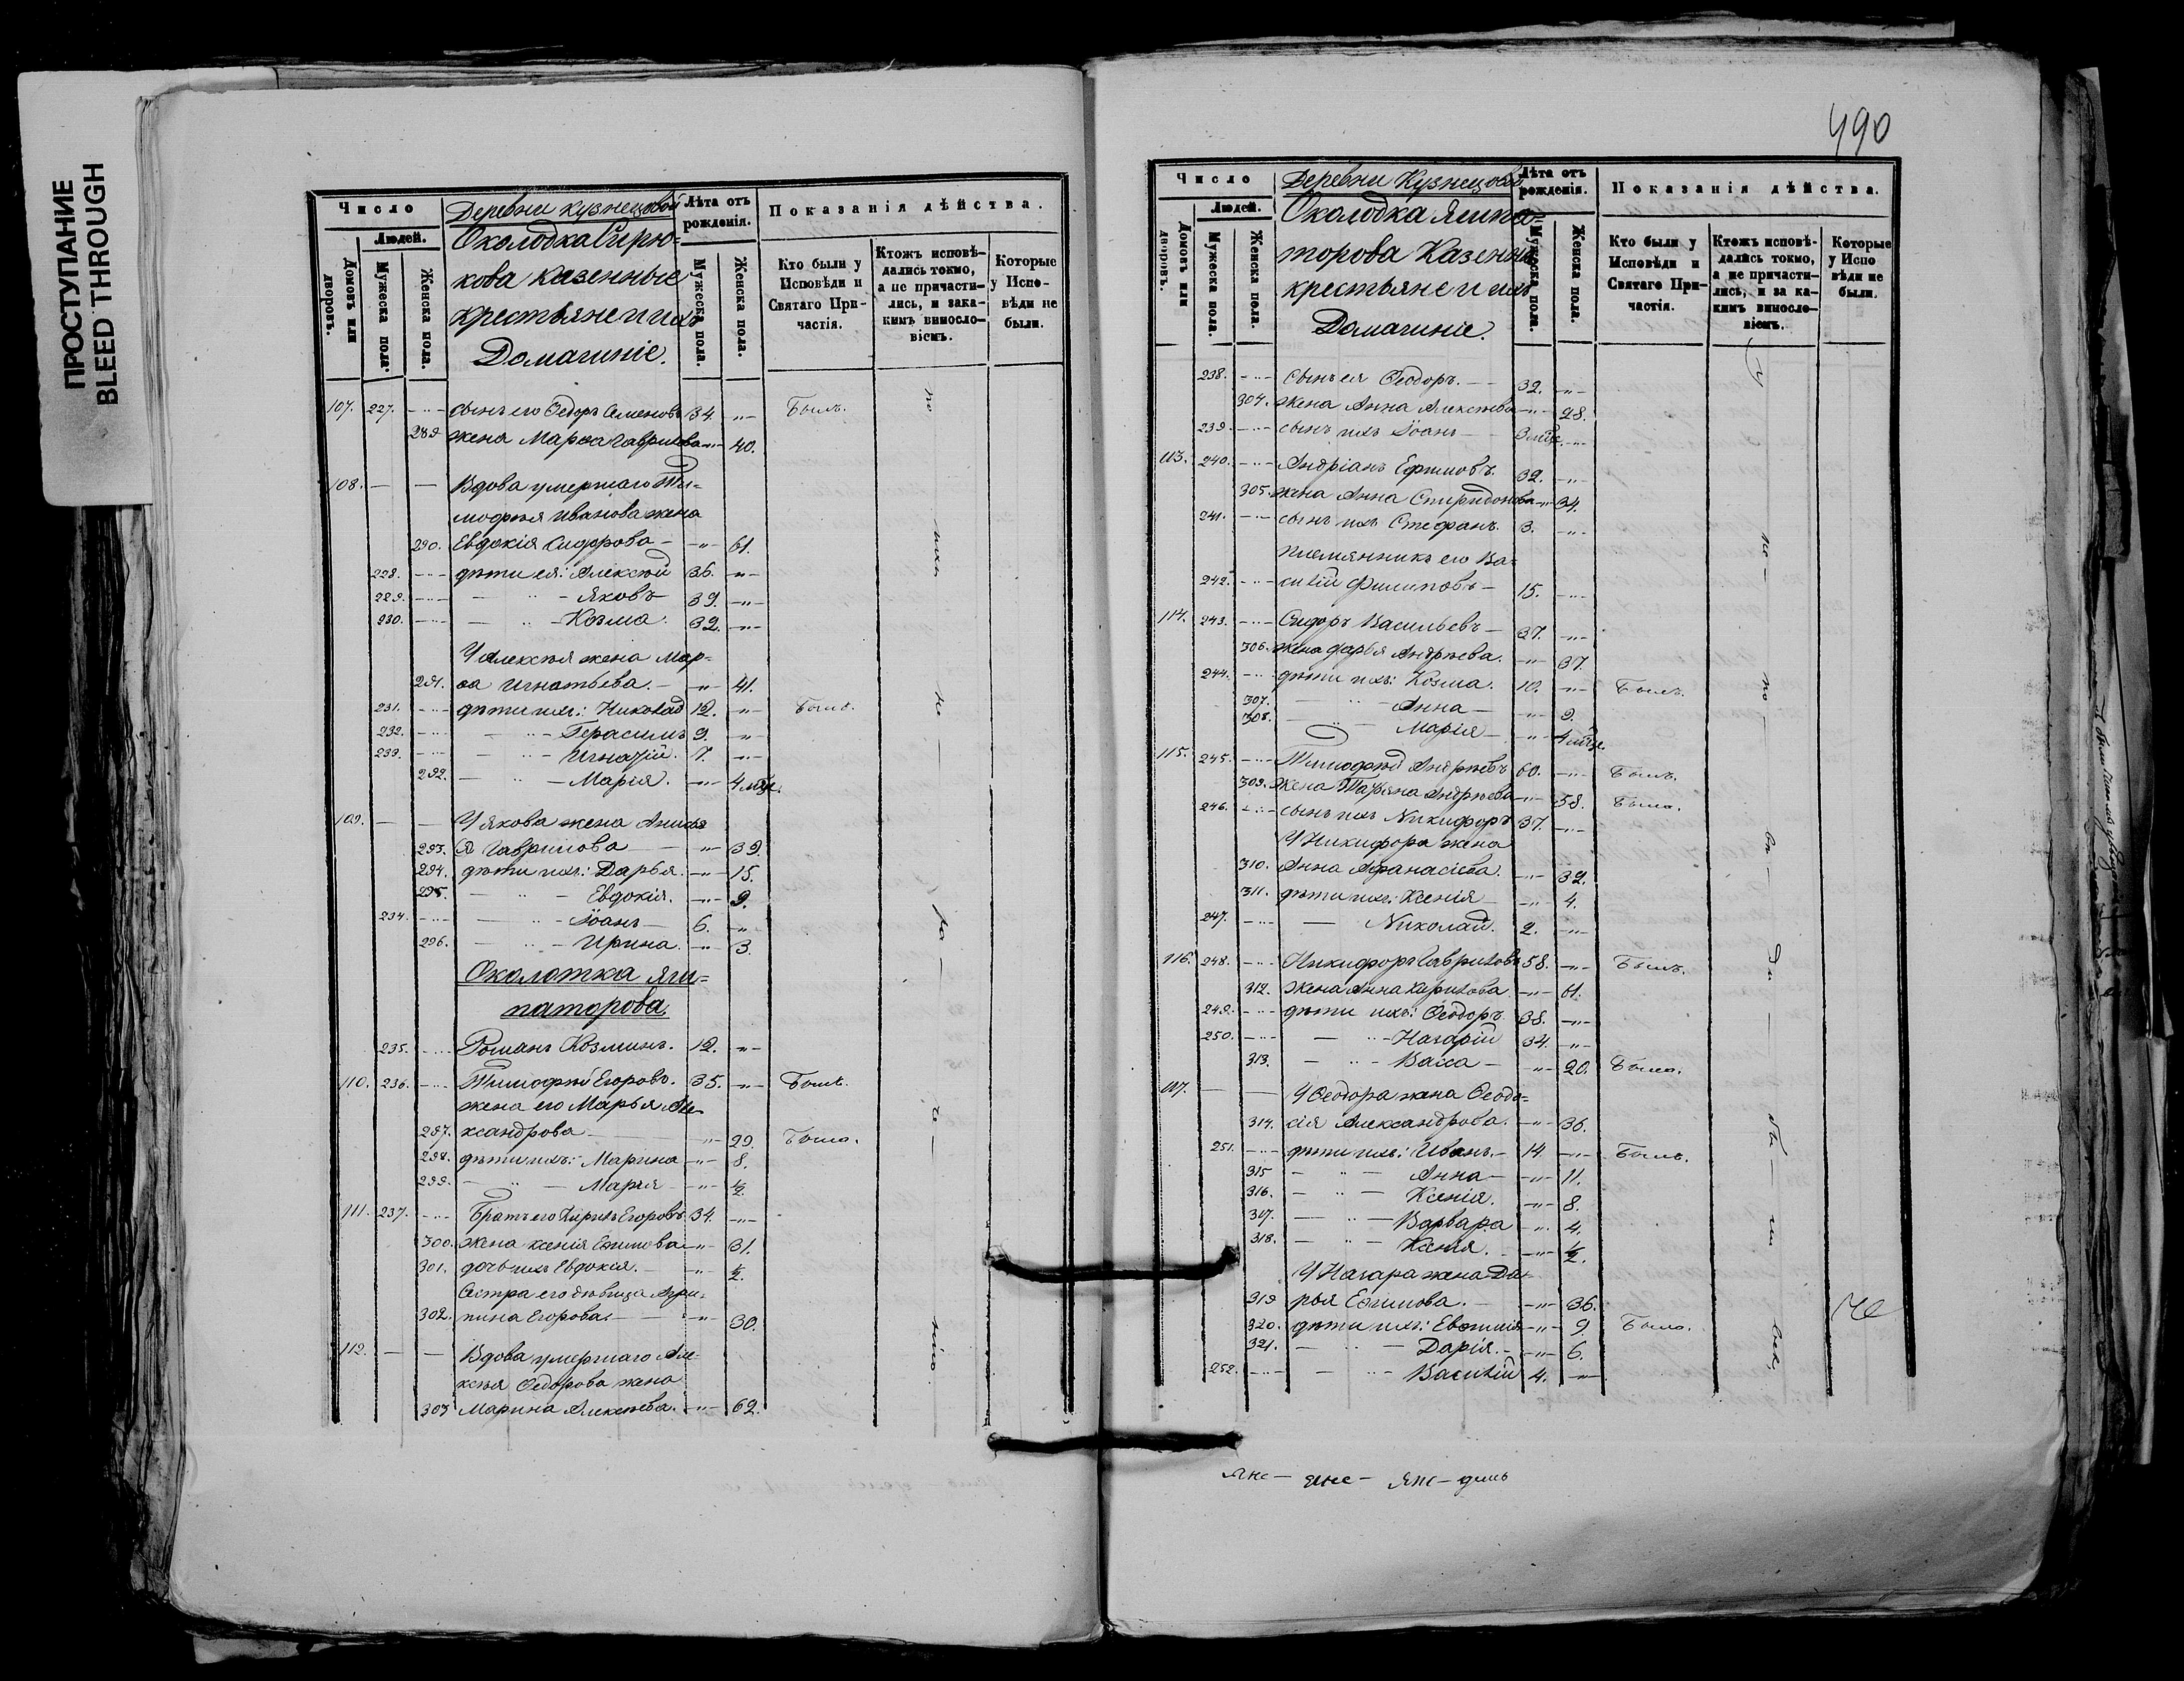 ПРОСТУПАНИЕ
BLEED THROUGH
Число
Людей.
Домовъ или дворовъ.
Мужеска пола.
Женска пола.
Деревни Кузнецовой
Околодка
кова казенные
крестьяне и ихъ
Домашніе.
Лѣта отъ рожденія.
Мужеска пола.
Женска пола.
Показанія дѣйства.
Кто были у Исповѣди и Святаго Причастія.
Ктожъ исповѣдались токмо, а не причастились, и закакимъ винословіемъ.
Которые у Исповѣди не были.
107. 227. -"- сынъ его Ѳедоръ Семеновъ 34. -"- Былъ.
289 жена Марѳа Гаврилова -"- 40.
108. — — Вдова умершаго Ти-
моѳея Иванова жена
290. Евдокія Сидорова -"- 61.
228. -"- дѣти ея: Алексѣй 36. -"-
229. -"- — " — Яковъ 39. -"-
230. -"- — " — Козма 32. -"-
У Алексѣя жена Мар-
291. ѳа Игнатьева. -"- 41.
231. -"- дѣти ихъ: Николай 12. -"- Былъ.
232. -"- — " — Герасимъ 9. -"-
233. -"- — " — Игнатій. 7. -"-
292. — " — Марія. -"- 4 мѣс.
109. — — У Якова жена
293. Гаврилова -"- 39.
294. дѣти ихъ: Дарья. -"- 15.
295. — " — Евдокія. -"- 9.
234. -"- — " — Іоанъ 6. -"-
296. — " — Ирина. -"- 3.
Околотка Яги-
паторова
235. -"- Романъ Козминъ. 12. -"-
110. 236. -"- Тимоѳей Егоровъ. 35. -"- Былъ.
жена его Марья Але-
297. ксандрова -"- 29. Была.
298. дѣти ихъ: Марина -"- 8.
299. — " — Марья -"- ½.
111. 237. -"- Братъ его Кирилъ Егоровъ 34. -"-
300. жена Ксенія Ефимова -"- 31.
301. дочь ихъ Евдокія. -"- ½.
Сестра его дѣвица Агри-
302. пина Егорова. -"- 30.
112. — — Вдова умершаго Але-
ксѣя Ѳедорова жена
303 Марина Алексѣева. -"- 62.
490
Число
Людей.
Домовъ или дворовъ.
Мужеска пола.
Женска пола.
Деревни Кузнецовой
Околодка
торова Казенные
крестьяне и ихъ
Домашніе.
Лѣта отъ рожденія.
Мужеска пола.
Женска пола.
Показанія дѣйства.
Кто были у Исповѣди и Святаго Причастія.
Ктожъ исповѣдались токмо, а не причастились, и за какимъ винословіемъ.
Которые у Исповѣди не были.
238. -"- сынъ ея Ѳеодоръ. 32. -"-
304. жена Анна Алексѣева -"- 28.
239. -"- сынъ ихъ Іоанъ 3 мѣс. -"-
113. 240. -"- Андріанъ Ефимовъ. 32. -"-
305. жена Анна Спиридонова -"- 34.
241. -"- сынъ ихъ Стефанъ. 3. -"-
племянникъ его Ва-
242. -"- силій Филиповъ 15. -"-
114. 243. -"- Сидоръ Васильевъ 37. -"-
306. жена Дарья Андрѣева. -"- 37.
244. -"- дѣти ихъ: Козма. 10. -"- Былъ.
307. — " — Анна -"- 9.
308. — " — Марія -"- 4 мѣс.
115. 245. -"- Тимофей Андрѣевъ 60. -"- Былъ.
309. жена Татьяна Андрѣева -"- 58. Была.
246. -"- сынъ ихъ Никифоръ 37. -"-
У Никифора жена
310. Анна Афанасіева. -"- 32.
311. дѣти ихъ: Ксенія -"- 4.
247. -"- — Николай. 2. -"-
116. 248. -"- Никифоръ Гавриловъ 58. -"- Былъ.
312. жена Анна Кирилова -"- 61.
249. -"- дѣти ихъ: Ѳеодоръ 38. -"-
250. -"- — " — Назарій 34. -"-
313. — " — Васса -"- 20. Была.
117. — — У Ѳеодора жена Ѳеодо-
314. сія Александрова. -"- 36.
251. -"- дѣти ихъ: Иванъ. 14. -"- Былъ.
315 — " — Анна -"- 11.
316. — " — Ксенія. -"- 8.
317. — " — Варвара -"- 4.
318. — " — Ксенія. -"- ½.
У Назара жена Да-
319 рья Ефимова. -"- 36.
320. дѣти ихъ: Евфимія -"- 9. Была.
321. — " — Дарія. -"- 6.
252. -"- — " — Василій 4. -"-